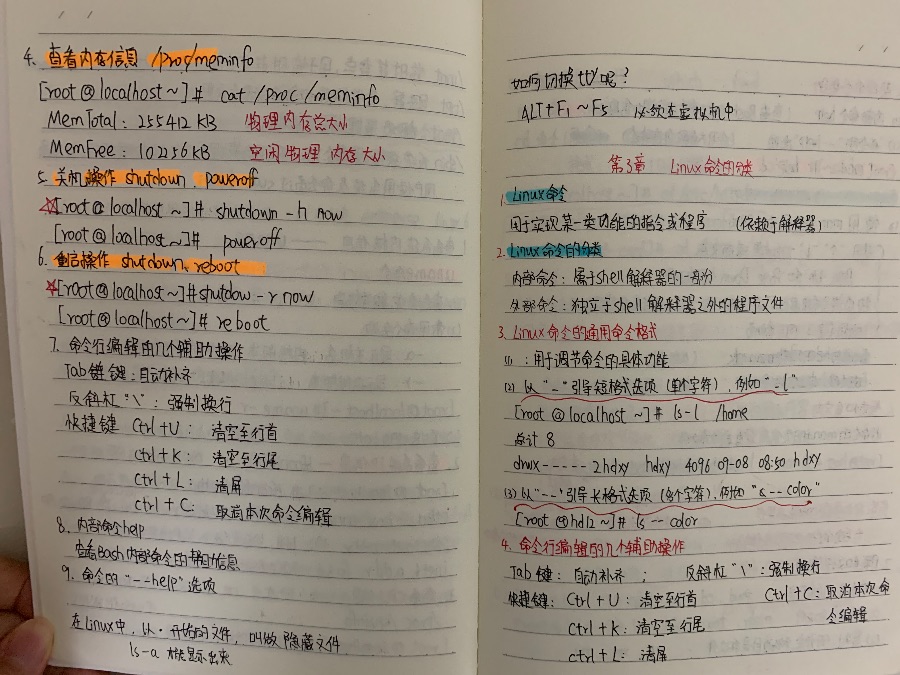 4. 查看内存信息 /proc/meminfo
[root@localhost ~]# cat /proc/meminfo
MemTotal: 255412 KB 物理内存总大小
MemFree: 102256KB 空闲物理内存大小
5. 关机操作 shutdown、poweroff
☆[root@localhost ~]# shutdown -h now
[root@localhost ~]# poweroff
6. 重启操作 shutdown、reboot
☆[root@localhost ~]#shutdow -r now
[root@localhost ~]# reboot
7. 命令行编辑的几个辅助操作
Tab键键:自动补齐
反斜杠"\":强制换行
快捷键 Ctrl+U: 清空至行首
ctrl+K: 清空至行尾
ctrl+L: 清屏
ctrl+C: 取消本次命令编辑
8. 内部命令help
查看Bash内部命令的帮助信息
9. 命令的"--help"选项
在Linux中,以·开始的文件,叫做隐藏文件
ls-a 才能显示出来
如何切换tty呢?
ALT+F1~F5 必须在虚拟机中
第3章 Linux命令的分类
1. Linux命令
用于实现某一类功能的指令或程序 (依赖于解释器)
2. Linux命令的分类
内部命令:属于shell解释器的一部份
外部命令:独立于shell解释器之外的程序文件
3. Linux命令的通用命令格式
(1) :用于调节命令的具体功能
(2) 以"-"引导短格式选项(单个字符),例如"-l"
[root@localhost ~]# ls-l /home
总计 8
drwx----- 2hdxy hdxy 4096 09-08 08:50 hdxy
(3) 以"--"引导长格式选项(多个字符),例如"--color"
[root@hd12 ~]# ls --color
4. 命令行编辑的几个辅助操作
Tab键: 自动补齐 ; 反斜杠"\":强制换行
快捷键: Ctrl+U: 清空至行首 Ctrl+C: 取消本次命
令编辑
ctrl+K: 清空至行尾
ctrl+L: 清屏